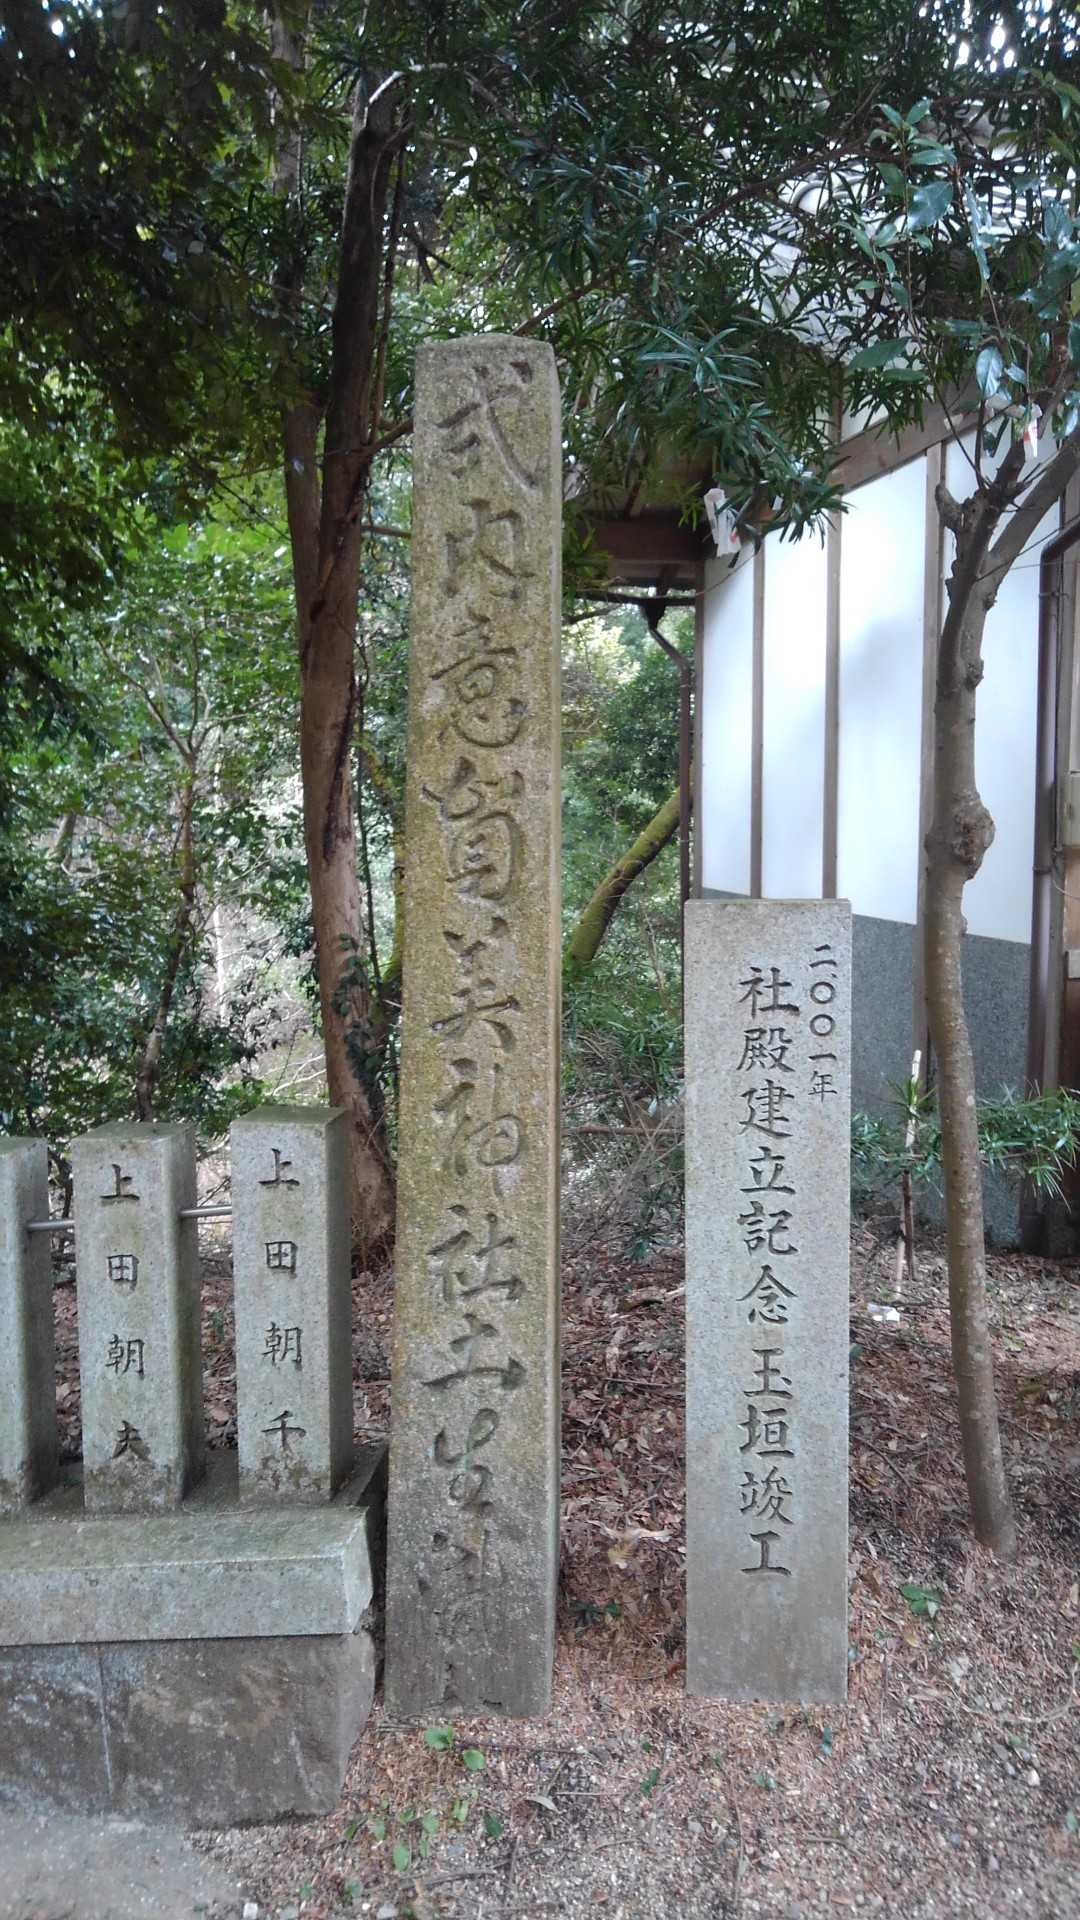 二〇〇一年
社殿建立記念玉垣竣工
式内意賀美神社土生瀧
上田朝千
上田朝夫